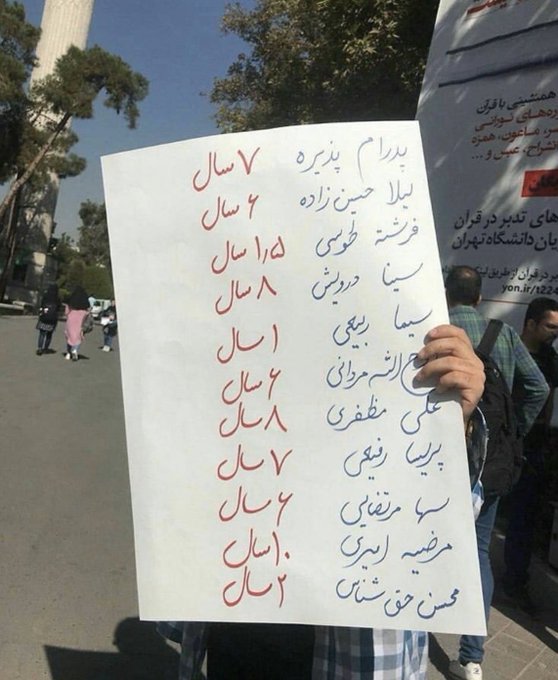 پدرام پذیره ۷ سال
لیلا حسین زاده ۶ سال
فرشته طوسی ۱٫۵ سال
سینا درویش ۸ سال
سیما ربیعی ۱ سال
الله مردانی ۶ سال
علی مظفری ۸ سال
پریسا رفیعی ۷ سال
سها مرتضایی ۶ سال
مرضیه امیری ۱۰ سال
محسن حق شناس ۲ سال
همنشینی با قرآن
نورانی
ماعون، همزه
انشراح، عبس و ...
های تدبر در قرآن
یان دانشگاه تهران
در قرآن از طریق
yon.ir/t224